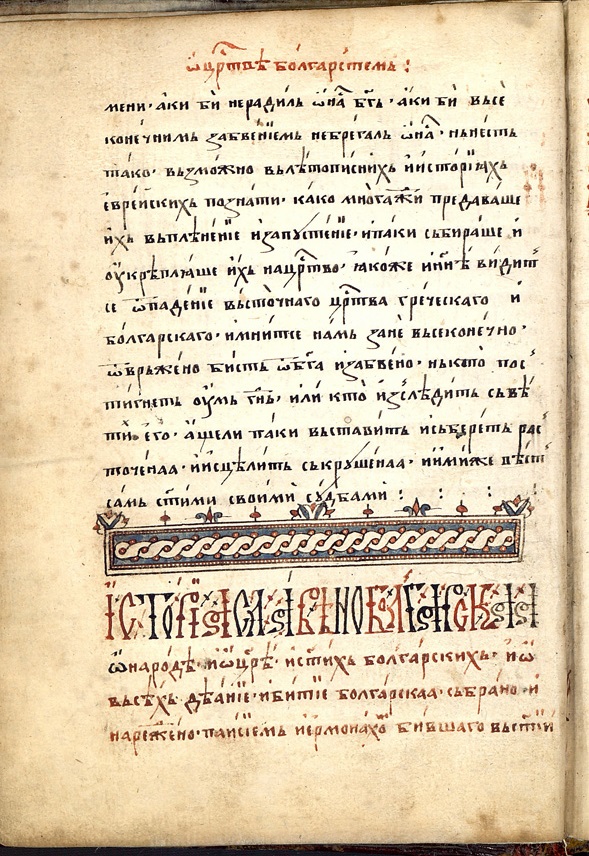 ѡ҆цр҃твѣ болгарстемь :
мени · аки би нерадилъ ѡ҆на́ бг҃ъ · аки би въсе
конечнимь забвенїемь небрегалъ ѡ҆на́ · нынесть
тако · възможно вълѣтописнихъ иисторїахъ
еврейскихъ познати · како многажди предаваше
ихъ въпленение изапустенїе · ипаки събираше и
оукрѣплꙗше ихъ нацр҃тво · ꙗкоже ин҃нѣ видит
се ѿпаденїе въсточнаго цр҃тва греческаго и
болгарскаго · имнитсе намь зане въсеконечно ·
ѿвръжено бисть ѿбг҃а изабвено · нькто пос
тигнеть оумь гс҃нь · или кто изслѣдить съвѣ
ти его · ащели паки въставить исьбереть рас
точенаа · иисцѣлить съкрушенаа · иимиже вѣст
самь ст҃ими своими судбами :
їсторїа славѣноболгарскаа
ѡ҆народѣ · иѡ҆цр҃ѣ · ист҃ихъ болгарскихъ · иѡ҆
въсѣхъ дѣанїе · ибитїе болгарскаа · събрано и
нареждено · паисїемь иермонахо бившаго въст҃їй